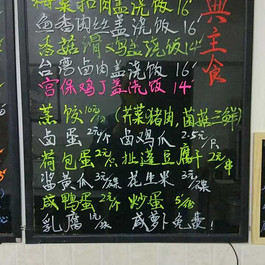 梅菜扣肉盖浇饭16
鱼香肉丝盖浇饭16
香菇滑鸡盖浇饭14
台湾卤肉盖浇饭16
宫保鸡丁盖浇饭14
典主食
蒸饺10元/ (芹菜猪肉,菌菇三鲜)
卤蛋2元/个 卤鸡爪2.5元/只
荷包蛋2元/个 扯莲豆腐干2元/串
酱黄瓜3元/碟 花生米3元/碟
咸鸭蛋2元/个 炒蛋5/份
乳腐1元/块 咸萝卜免费!